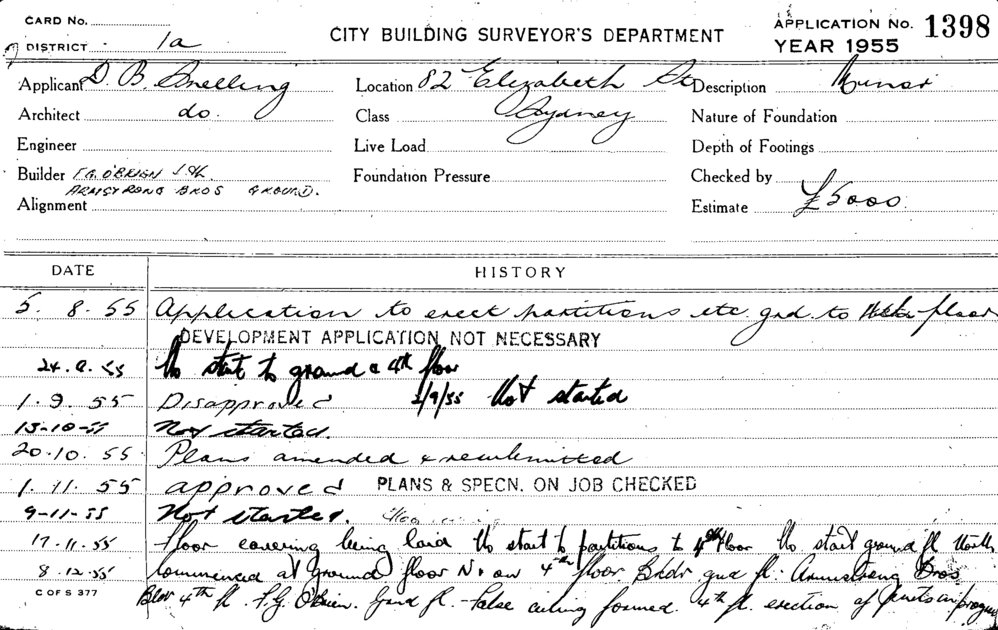 CARD No.
DISTRICT 1a
CITY BUILDING SURVEYOR'S DEPARTMENT
APPLICATION No. 1398
YEAR 1955
Applicant D. B. Snelling
Location 82 Elizabeth St
Description Minor
Architect do.
Class Sydney
Nature of Foundation
Engineer
Live Load
Depth of Footings
Builder F.G. O'BRIEN 4th.
Foundation Pressure
Checked by
ARMSTRONG BROS GROUND.
Alignment
Estimate £5000
DATE HISTORY
5. 8. 55 Application to erect partitions etc grd to floor
DEVELOPMENT APPLICATION NOT NECESSARY
55 No start to ground & 4th floor
1. 9. 55 Disapproved 2/9/55 Not started
13-10-55 Not started.
20.10. 55 Plans amended & resubmitted
1. 11. 55 approved PLANS & SPECN. ON JOB CHECKED
9-11-55 Not started.
17.11.55 Floor covering being laid No start to partitions to 4th floor No start ground fl Work
8.12.55 commenced at ground floor 4th floor. Bldr gnd fl. Armstrong Bros
C OF S 377
Bldr 4th fl. F.G. O'Brien. Grnd fl. - False ceiling formed. 4th fl. erection of